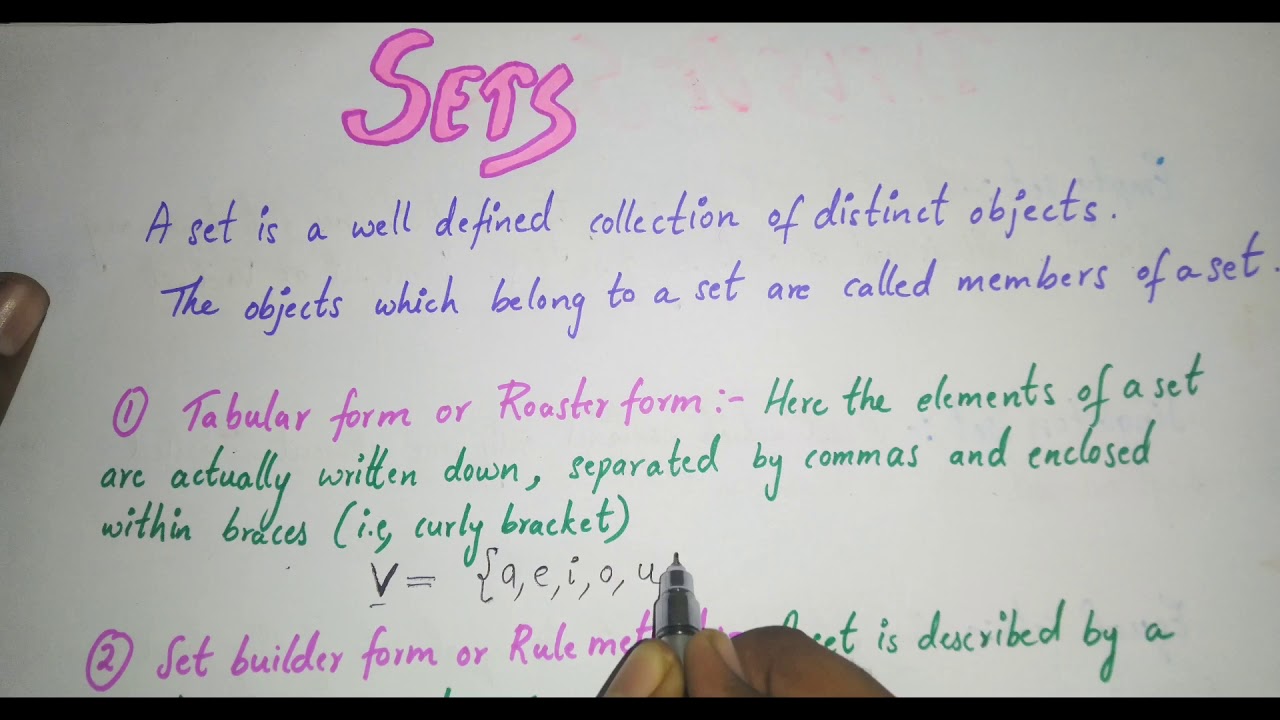 SETS
A set is a well defined collection of distinct objects.
The objects which belong to a set are called members of a set.
① Tabular form or Roaster form :- Here the elements of a set
are actually written down, separated by commas and enclosed
within braces (i.e, curly bracket)
V = {a, e, i, o, u
② Set builder form or Rule set is described by a